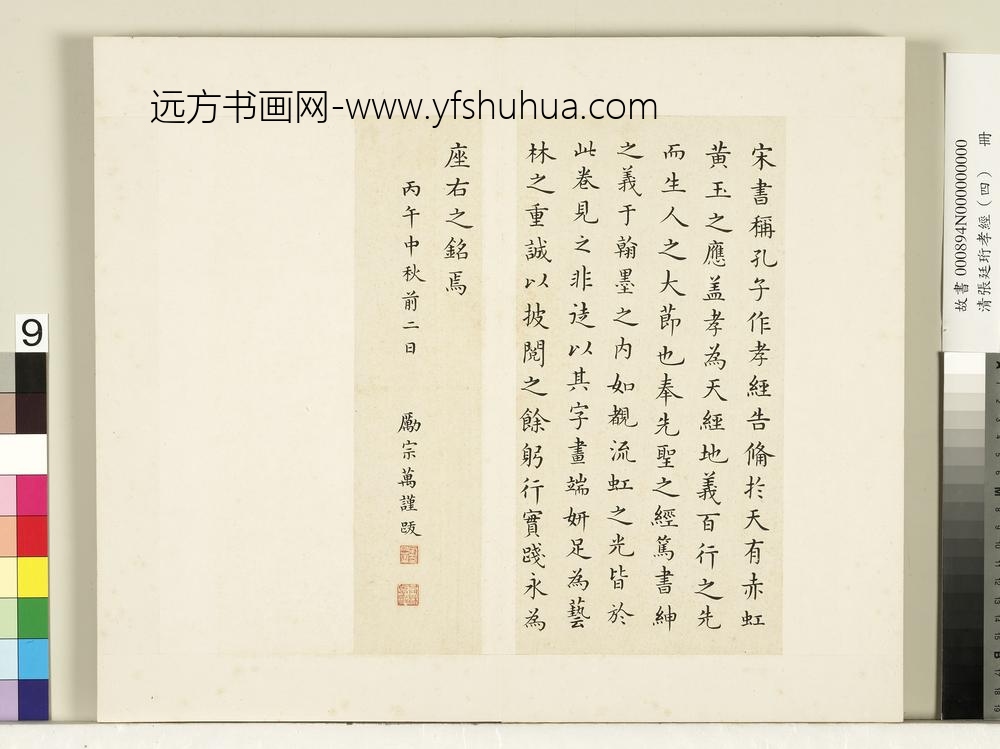 远方书画网-www.yfshuhua.com
宋書稱孔子作孝經告脩於天有赤虹
黄玉之應盖孝為天經地義百行之先
而生人之大莭也奉先聖之經篤書紳
之義于翰墨之内如覩流虹之光皆於
此卷見之非徒以其字畫端妍足為藝
林之重誠以披閱之餘躬行實踐永為
座右之銘焉
丙午中秋前二日 勵宗萬謹跋
故書 000894N000000000
清張廷珩孝經（四） 冊
9